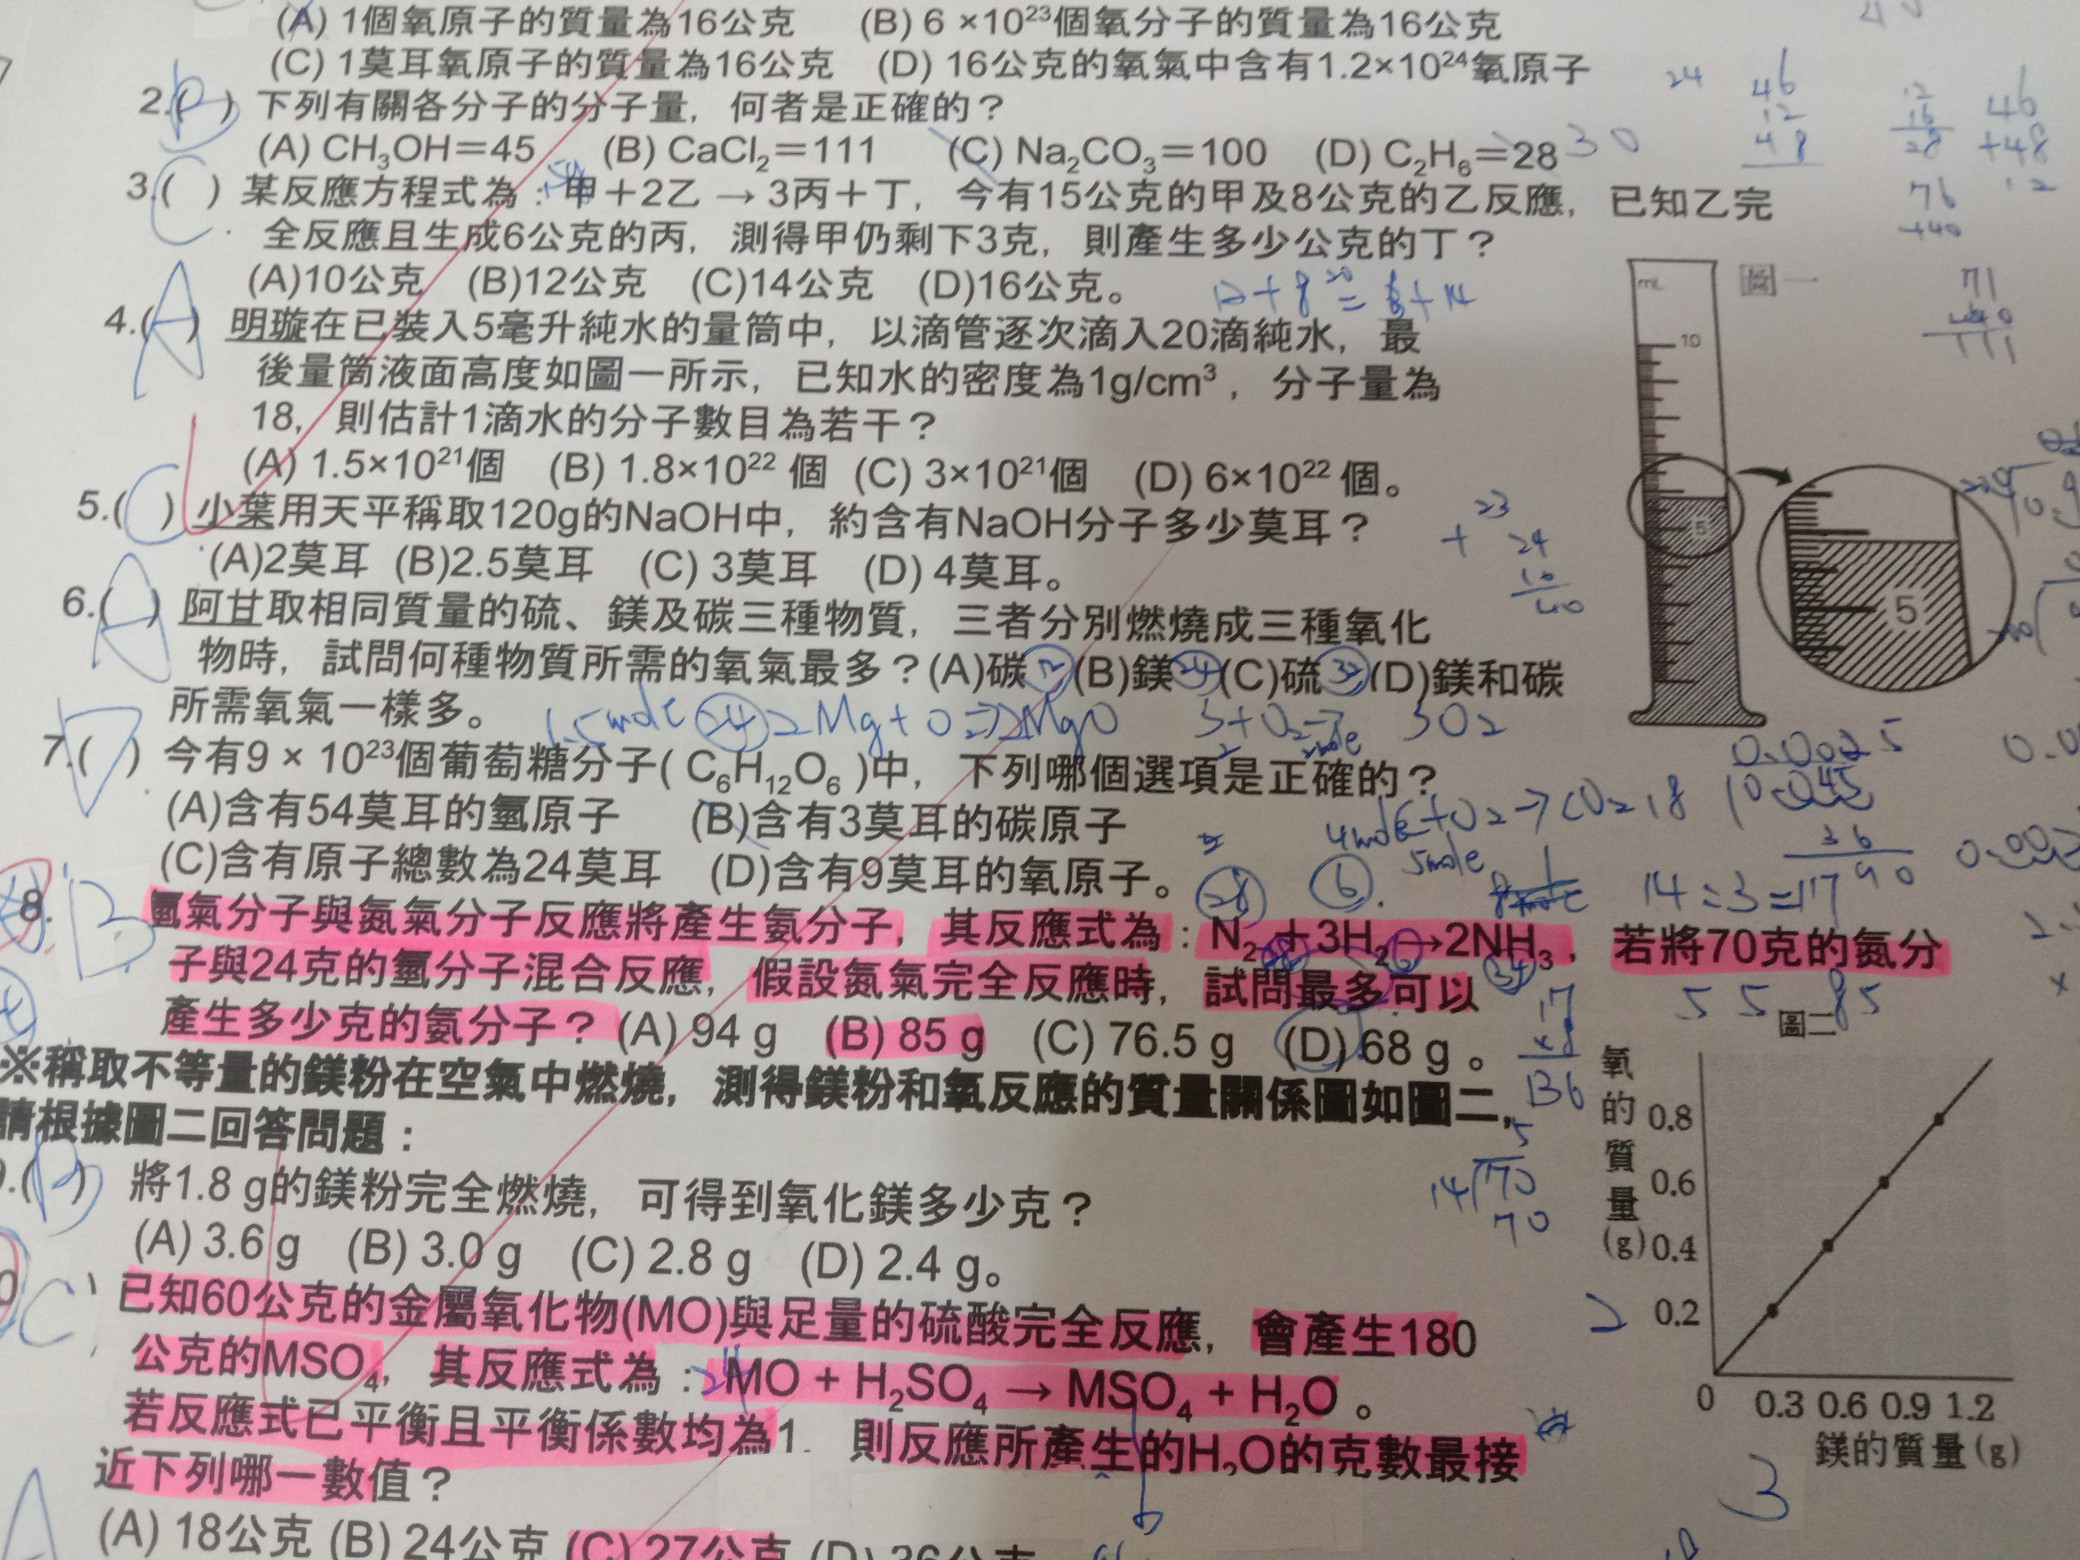 (A) 1個氧原子的質量為16公克 (B) 6 ×10²³個氧分子的質量為16公克
(C) 1莫耳氧原子的質量為16公克 (D) 16公克的氧氣中含有1.2×10²⁴氧原子
2.(B) 下列有關各分子的分子量，何者是正確的？
(A) CH₃OH＝45 (B) CaCl₂＝111 (C) Na₂CO₃＝100 (D) C₂H₆＝28 30
3.(C) 某反應方程式為：甲＋2乙 → 3丙＋丁，今有15公克的甲及8公克的乙反應，已知乙完
全反應且生成6公克的丙，測得甲仍剩下3克，則產生多少公克的丁？
(A)10公克 (B)12公克 (C)14公克 (D)16公克。
12+8=6+14
4.(A) 明璇在已裝入5毫升純水的量筒中，以滴管逐次滴入20滴純水，最
後量筒液面高度如圖一所示，已知水的密度為1g/cm³，分子量為
18，則估計1滴水的分子數目為若干？
(A) 1.5×10²¹個 (B) 1.8×10²² 個 (C) 3×10²¹個 (D) 6×10²² 個。
圖一
mL
10
5
5
5.(C) 小葉用天平稱取120g的NaOH中，約含有NaOH分子多少莫耳？
(A)2莫耳 (B)2.5莫耳 (C) 3莫耳 (D) 4莫耳。
6.(A) 阿甘取相同質量的硫、鎂及碳三種物質，三者分別燃燒成三種氧化
物時，試問何種物質所需的氧氣最多？(A)碳 12 (B)鎂 24 (C)硫 32 (D)鎂和碳
所需氧氣一樣多。
1.5mole 24 2Mg+O₂→2MgO
7.(D) 今有9 × 10²³個葡萄糖分子( C₆H₁₂O₆ )中，下列哪個選項是正確的？
(A)含有54莫耳的氫原子 (B)含有3莫耳的碳原子
(C)含有原子總數為24莫耳 (D)含有9莫耳的氧原子。
28 6
14:3=17
8. B 氫氣分子與氮氣分子反應將產生氨分子，其反應式為：N₂＋3H₂→2NH₃，若將70克的氮分
28 6 34
子與24克的氫分子混合反應，假設氮氣完全反應時，試問最多可以
5 5 85
產生多少克的氨分子？ (A) 94 g (B) 85 g (C) 76.5 g (D) 68 g 。
17
×8
136
※稱取不等量的鎂粉在空氣中燃燒，測得鎂粉和氧反應的質量關係圖如圖二，
請根據圖二回答問題：
5
14 70
70
9.(B) 將1.8 g的鎂粉完全燃燒，可得到氧化鎂多少克？
(A) 3.6 g (B) 3.0 g (C) 2.8 g (D) 2.4 g。
圖二
氧的質量(g)
0.8
0.6
0.4
0.2
0 0.3 0.6 0.9 1.2
鎂的質量(g)
2
3
C 已知60公克的金屬氧化物(MO)與足量的硫酸完全反應，會產生180
公克的MSO₄，其反應式為：MO + H₂SO₄ → MSO₄ + H₂O 。
若反應式已平衡且平衡係數均為1. 則反應所產生的H₂O的克數最接
近下列哪一數值？
(A) 18公克 (B) 24公克 (C) 27公克 (D) 36公克